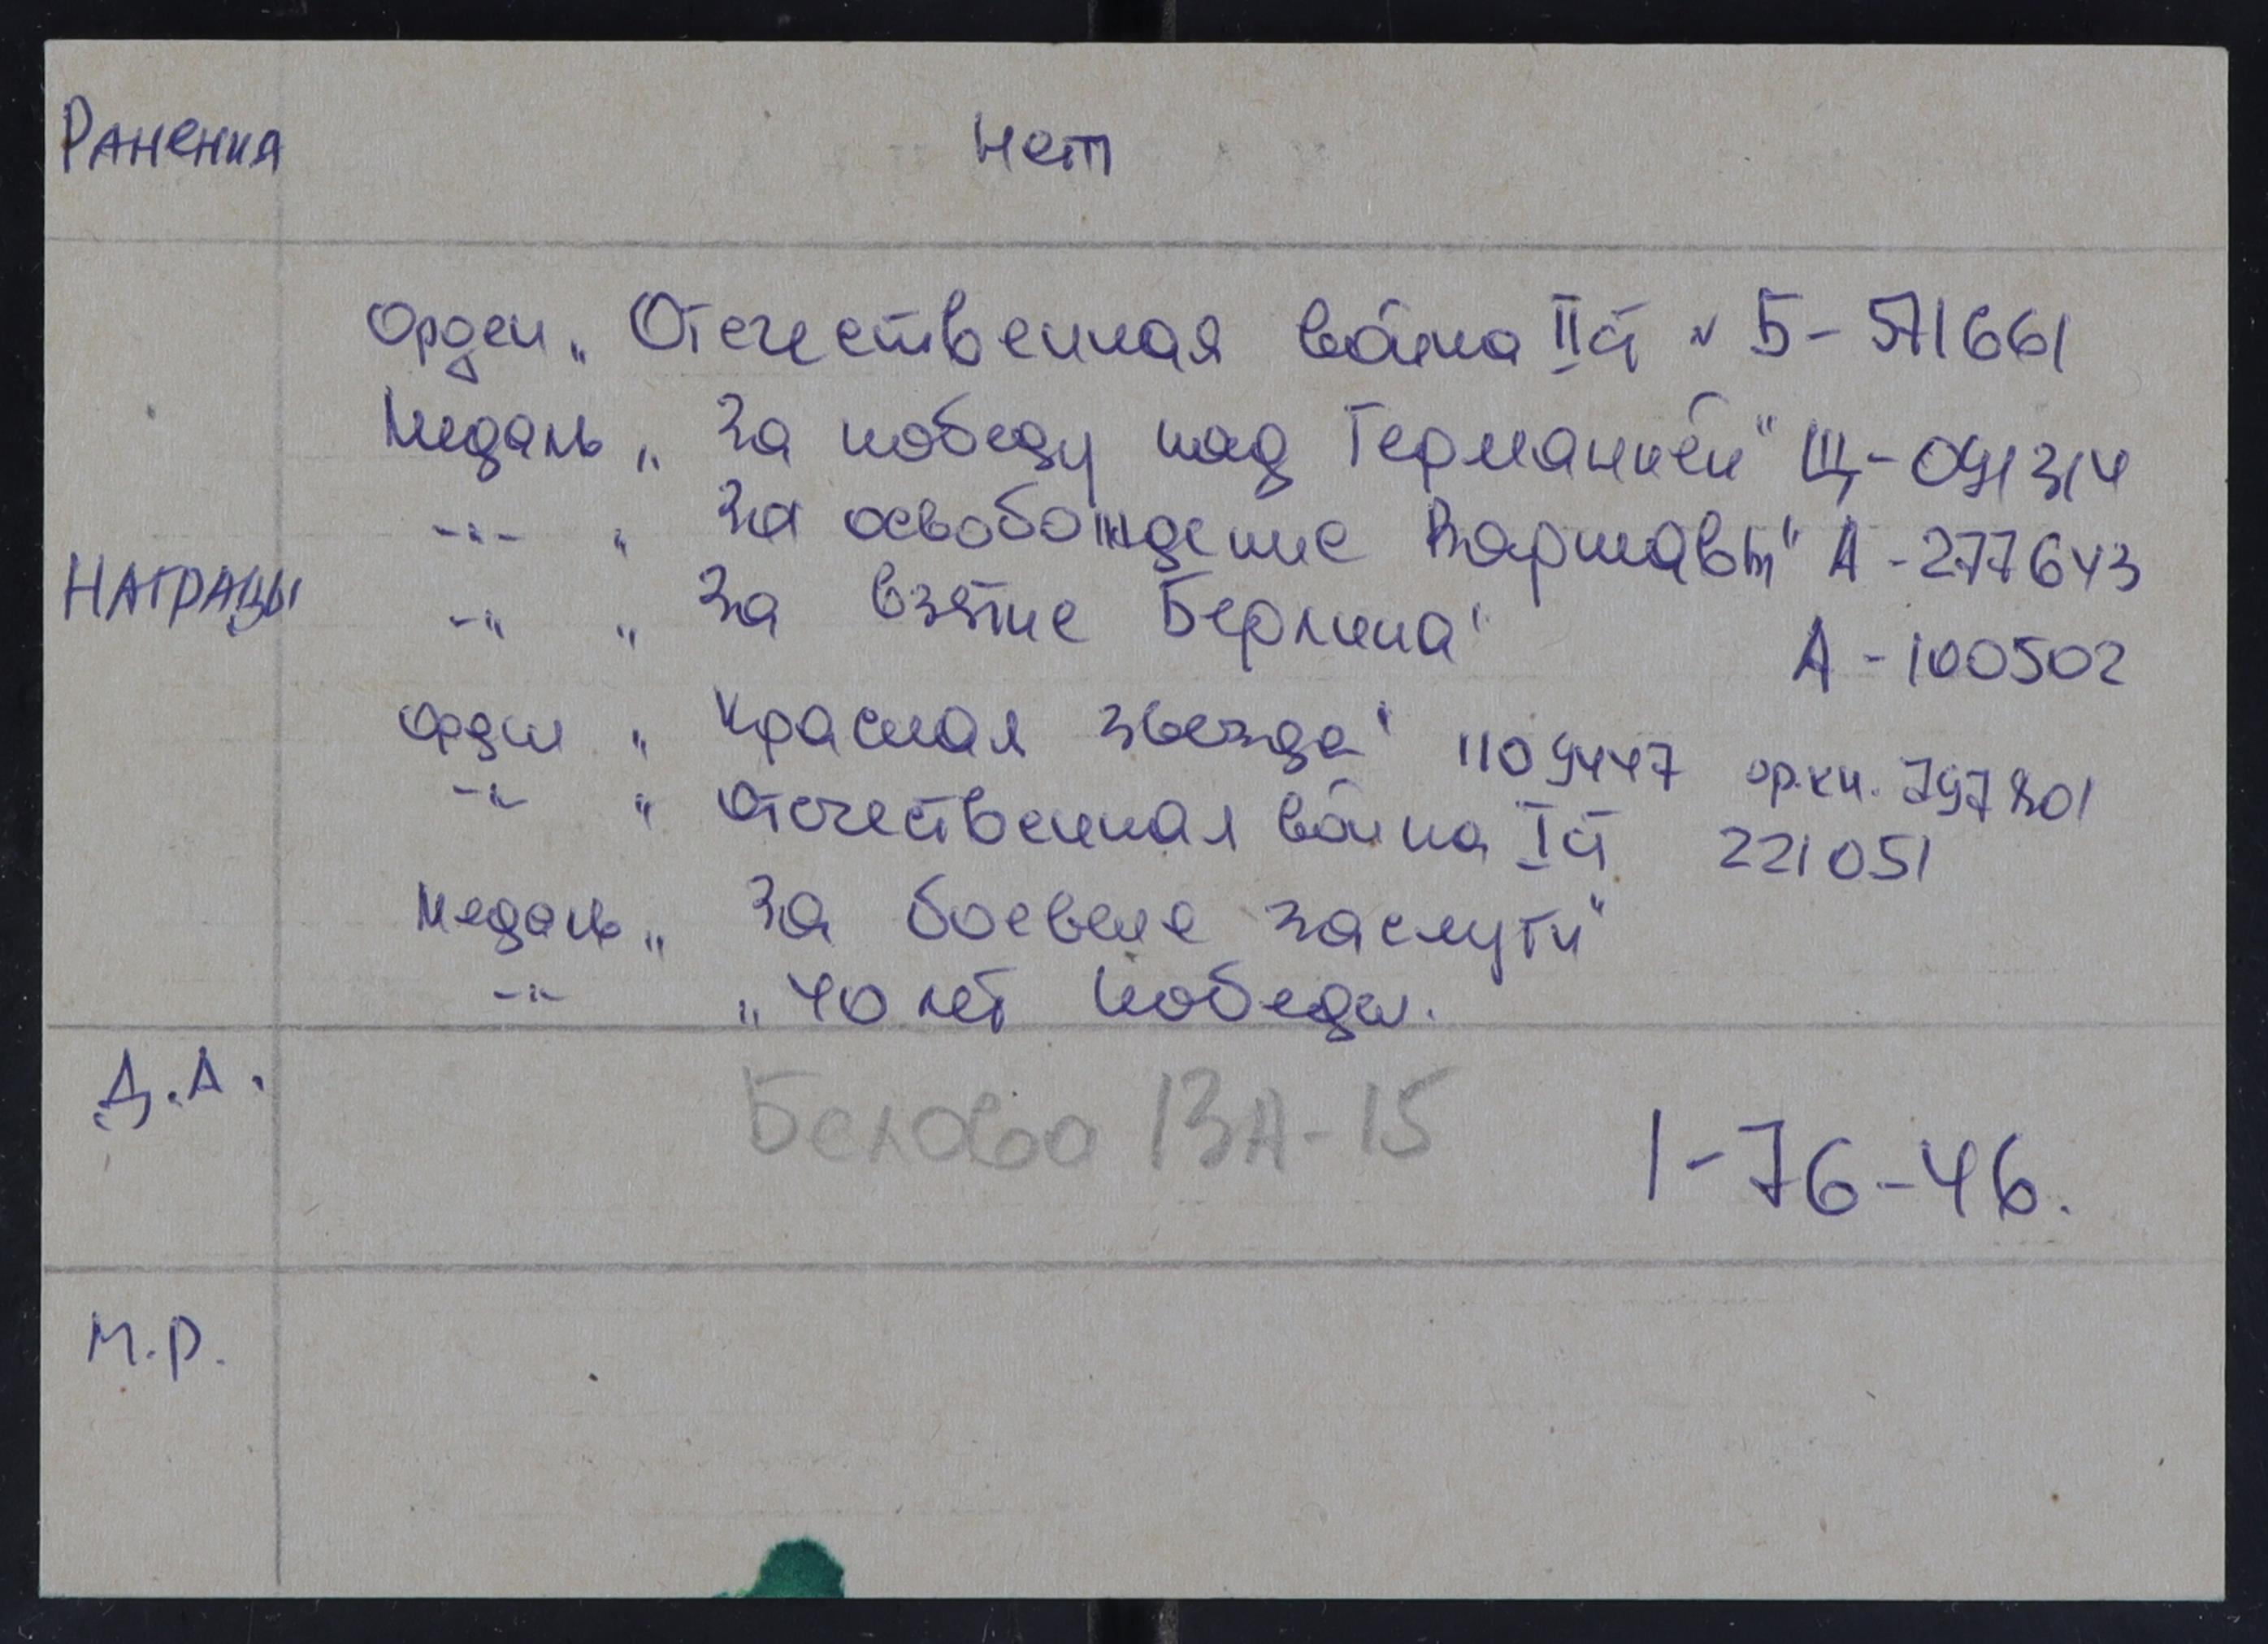 Ранения нет
Орден „Отечественная война II ст № Б-571661
Медаль „За победу над Германией" Щ-091314
-"- „За освобождение Варшавы" А-277643
Награды
-"- „За взятие Берлина" А-100502
Орден „Красная звезда" 1109447 ор.кн. 797801
-"- „Отечественная война I ст 221051
Медаль „За боевые заслуги"
-"- „40 лет Победы.
Д.А. Белово 13А-15 1-76-46.
М.Р.